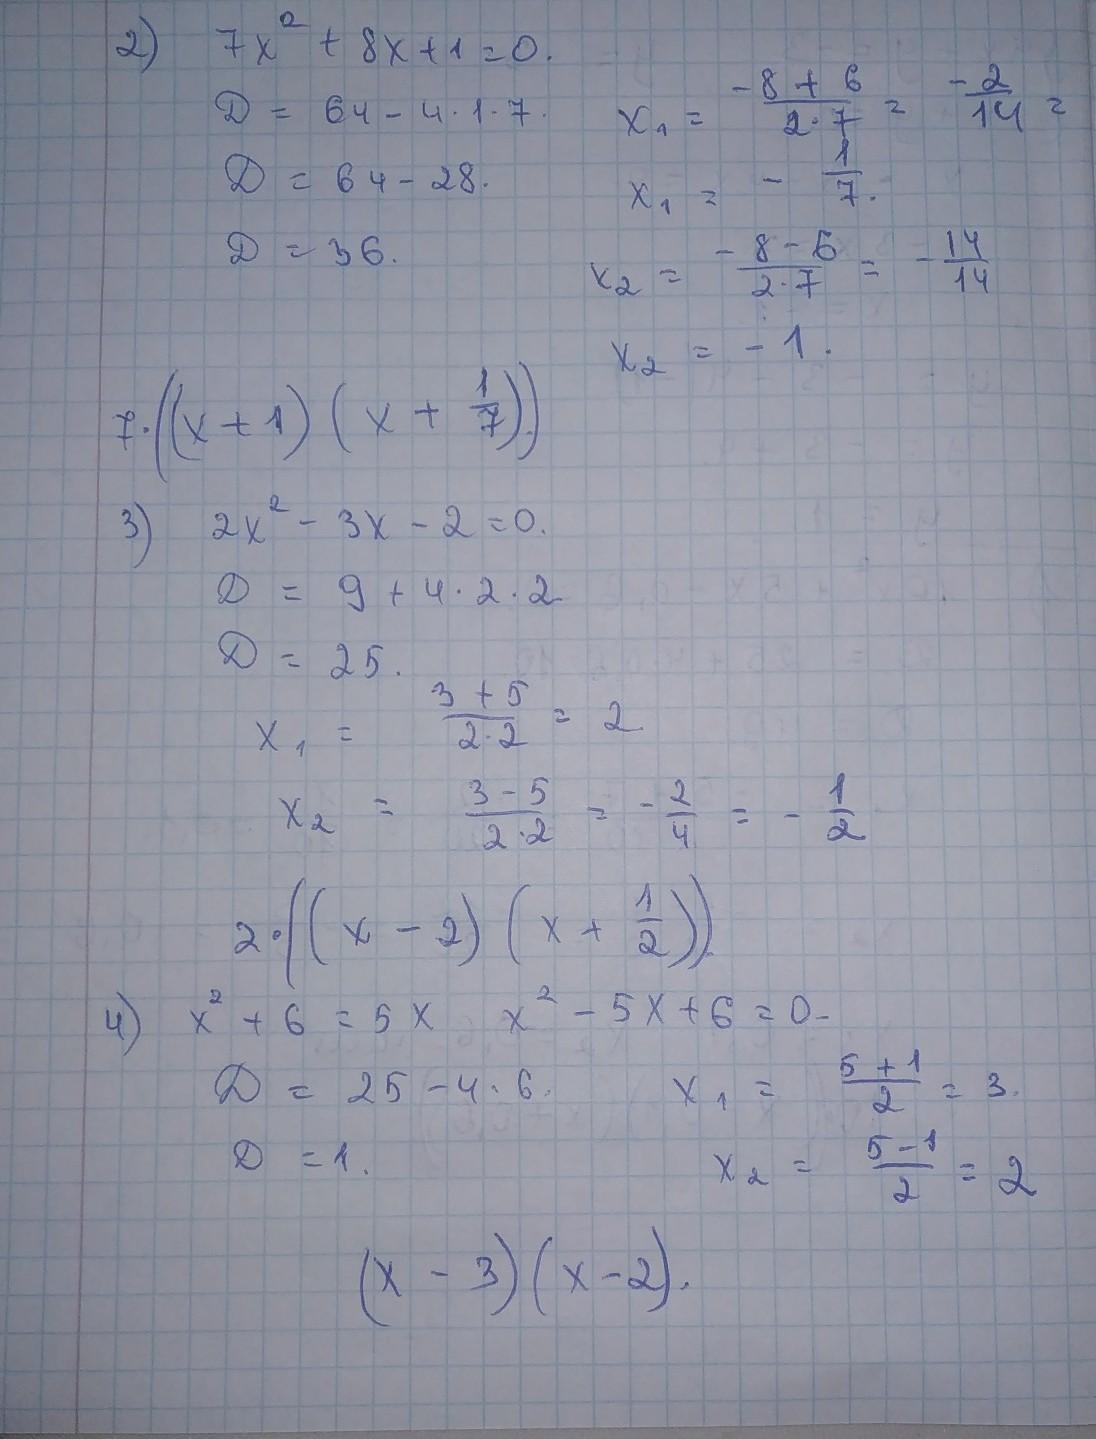 2) 7x² + 8x + 1 = 0.
D = 64 - 4·1·7.
D = 64 - 28.
D = 36.
x₁ = (-8 + 6)/(2·7) = -2/14 =
x₁ = -1/7.
x₂ = (-8 - 6)/(2·7) = -14/14
x₂ = -1.
7·((x + 1)(x + 1/7)).
3) 2x² - 3x - 2 = 0.
D = 9 + 4·2·2
D = 25.
x₁ = (3 + 5)/(2·2) = 2
x₂ = (3 - 5)/(2·2) = -2/4 = -1/2
2·((x - 2)(x + 1/2)).
4) x² + 6 = 5x x² - 5x + 6 = 0.
D = 25 - 4·6.
D = 1.
x₁ = (5 + 1)/2 = 3.
x₂ = (5 - 1)/2 = 2
(x - 3)(x - 2).